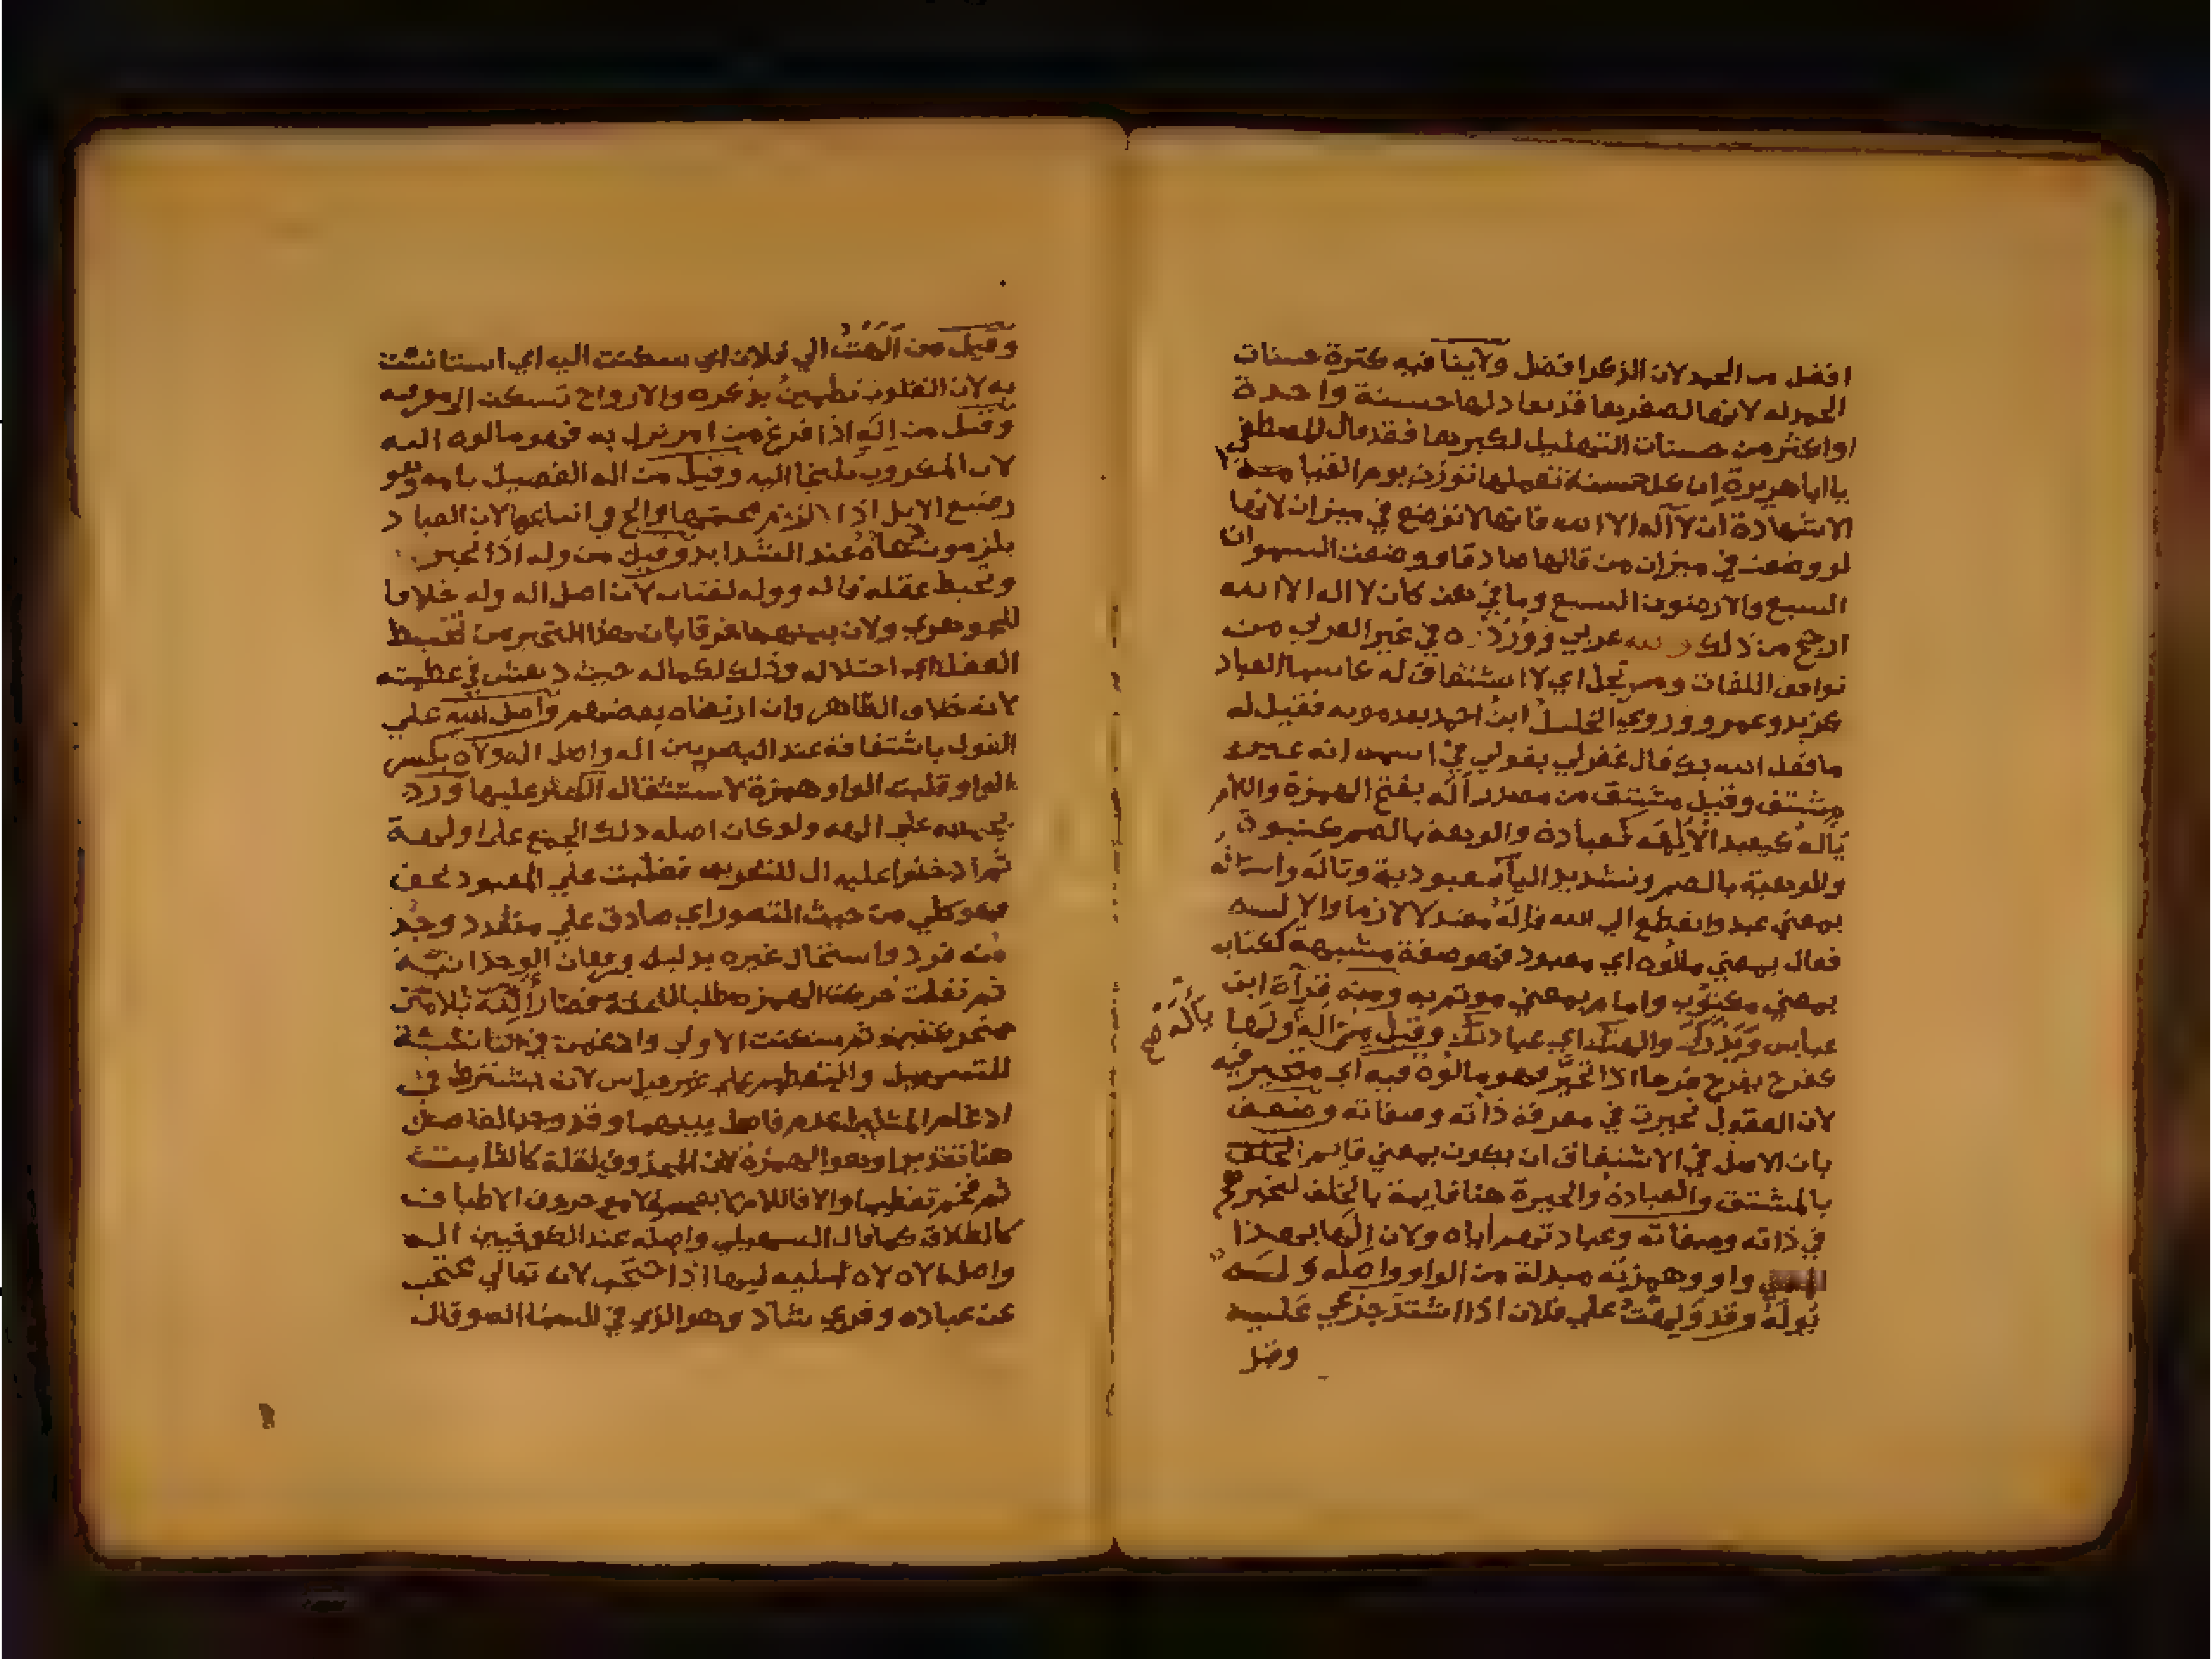 افضل من الحمد لان الذكر افضل ولاينا فيه كثرة حسنات
الحمد له لانها لصغربها قد يعاد لها حسنة واحدة
او اكثر من حسنات التهليل لكبرها فقد قال المصطفى
يا ابا هريرة ان كل حسنة تعملها توزن يوم القيامة
الا شهادة ان لا اله الا الله فانها لا توضع في ميزان لانها
لو وضعت في ميزان من قالها صادقا ووضعت السموات
السبع والارضون السبع وما فيهن كان لا اله الا الله
ارجح من ذلك والله عربي ووروده في غير العربي من
توافق اللغات ومرتجل اي لا اشتقاق له كاسما العباد
كزيد وعمرو وروي الخليل ابن احمد بعد موته فقيل له
ما فعل الله بك قال غفر لي بقولي في اسمه انه غير
مشتق وقيل مشتق من مصدر اَلَه بفتح الهمزة واللام
يَألَه كيعبد الالهة كعبادة والوهة بالضم كعبودة
والوهية بالضم وتشديد اليآ كعبودية وتأله واستاله
بمعني عبد وانقطع الي الله فاله معند لا لازما والاله
فعال بمعني مالوه اي معبود فهو صفة مشبهة ككتاب
بمعني مكتوب وامام بمعني موتم به ومنه قرآة ابن
عباس وَيَذَرَكَ والهتك اي عبادتك وقيل من اَلَه اَولَها
يَألَه صح
كفرح يفرح فرحا اذا تحيَّر فهو مالُوه فيه اي متحير فيه
لان العقول تحيرت في معرفة ذاته وصفاته وضعف
بان الاصل في الاشتقاق ان يكون بمعني قايم
بالمشتق والعبادة والحيرة هنا قايمة بالخلق لتحيرهم
في ذاته وصفاته وعبادتهم اياه ولان اِلَها بهذا
المعني واو وهمزته مبدلة من الواو واصله وَلَه
يَولَهُ وقد وَلِهْتُ علي فلان اذا اشتد جزعي عليه
وقيل
وقيل من اَلَهْتُ الي فلان اي سكنت اليه اي استانست
به لان القلوب تطمين بذكره والارواح تسكن الي معرفته
وقيل من اِلَه اذا فزع من امر نزل به فهو مالوه اليه
لان المكروب يلتجا اليه وقيل من اله الفصيل بامه وهو
رضيع الابل اذا لازم محبتها والح في اتباعها لان العباد
يلزمون دعاه عند الشدايد وقيل من وله اذا تحير
وتخبط عقله فاله ووله لغتان لان اصل اله وله خلافا
للجوهري ولان بينهما فرقا بان هذا التحير من تخبط
العقل اي اختلاله وذلك لكماله حيث دهش في عظمته
لانه خلاف الظاهر وان ارتضاه بعضهم واصل الله علي
القول باشتقاقه عند البصريين اله واصل اله ولاه بكسر
الواو قلبت الواو همزة لاستثقال الكسر عليها ورد
بجمعه علي الهه ولو كان اصله ذلك لجمع علي اولهة
ثم ادخلوا عليه ال للتعريف فغلبت علي المعبود بحق
فهو كلي من حيث التصور اي صادق علي متعدد وجد
منه فرد واستحال غيره بدليل برهان الوحدانية
ثم نقلت حركة الهمزه طلبا للخفة فصار أللَاه بلامين
متحركتين ثم سكنت الاولي وادغمت في الثانية
للتسهيل والتعظيم علي غير قياس لانه يشترط في
ادغام المثلين عدم فاصل بينهما وقد وجد الفاصل
هنا تقديرا وهو الهمزة لان المحذوف لعلة كالثابت
ثم فخم تعظيما والا فاللام لا تفخم الا مع حروف الاطباق
كالطلاق كما قال السهيلي واصله عند الكوفيين اله
واصله لاه لاه يليه ليها اذا احتجب لانه تعالي محتجب
عن عباده وقري شاذ وهو الذي في السما اله وقال